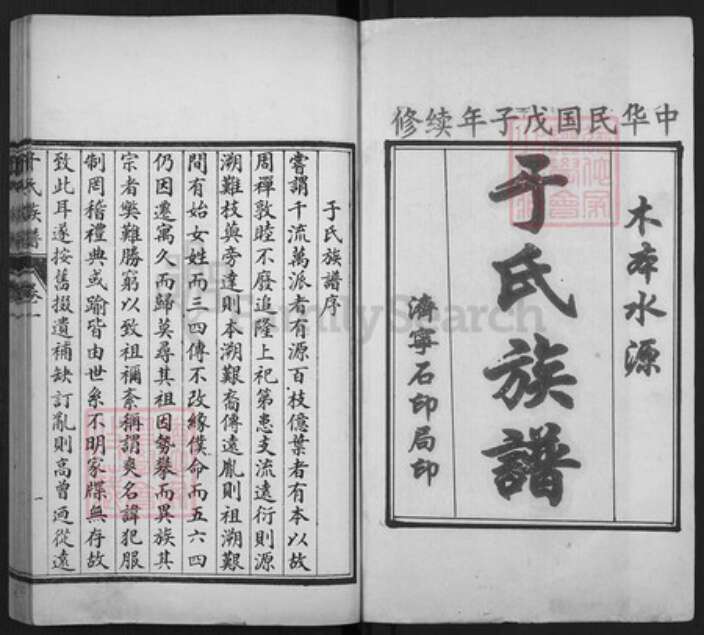 中华民国戊子年续修
木本水源
于氏族譜
濟寧石印局印
于氏族譜序
嘗謂千流萬派者有源百枝億葉者有本以故
周禪敦睦不廢追隆上祀第患支流遠衍則源
溯難枝蔓旁達則本溯艱裔傳遠胤則祖溯艱
間有始女姓而三四傳不改緣僕命而五六四
仍因遷寓久而歸莫尋其祖因勢攀而異族其
宗者樊難勝窮以致祖禰紊稱謂爽名諱犯服
制罔稽禮典或踰皆由世系不明家牒無存故
致此耳遂按舊掇遺補缺訂亂則高曾迺從遠
于氏族譜
卷一
FamilySearch